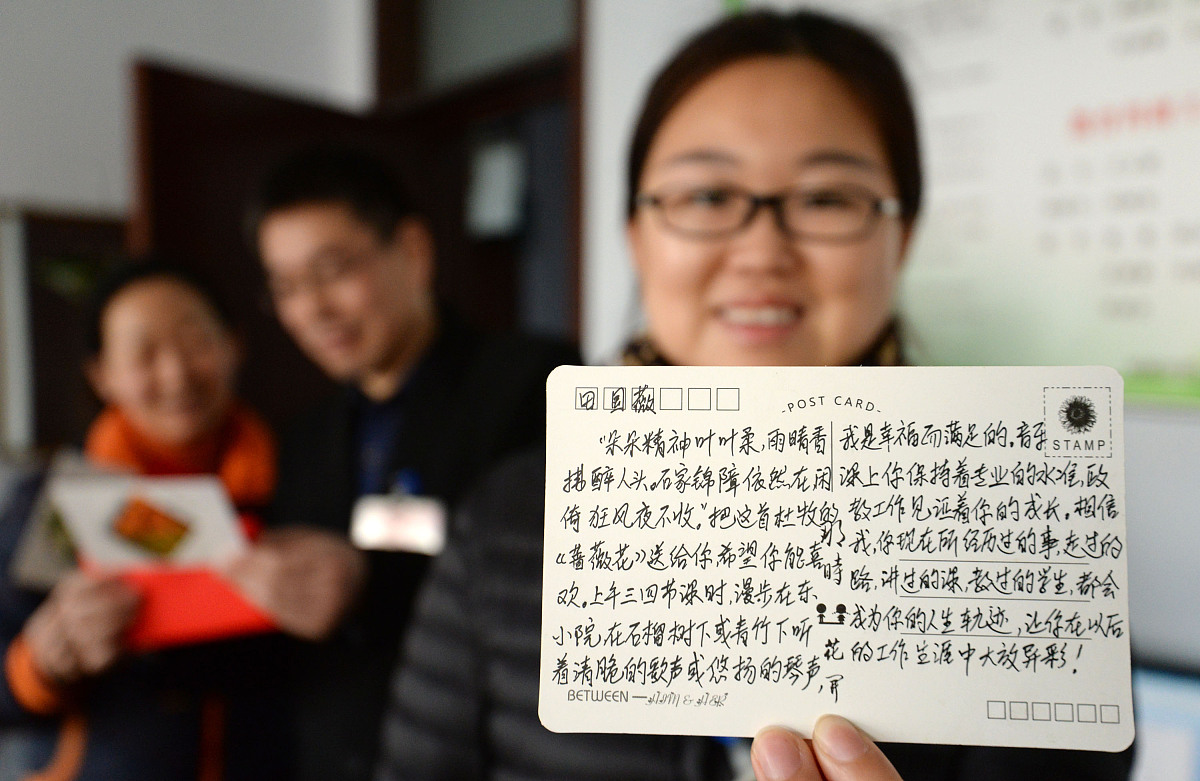 田国薇
POST CARD
STAMP
"朵朵精神叶叶柔,雨晴香
拂醉人头。石家锦障依然在闲
倚狂风夜不收。"把这首杜牧的
《蔷薇花》送给你希望你能喜
欢。上午三四节课时,漫步在东
小院,在石榴树下或青竹下听
着清脆的歌声或悠扬的琴声,
那
时
花
我是幸福而满足的。音乐
课上你保持着专业的水准,政
教工作见证着你的成长。相信
我,你现在所经历过的事,走过的
路,讲过的课,教过的学生,都会
成为你的人生轨迹,让你在以后
的工作生涯中大放异彩!
BETWEEN